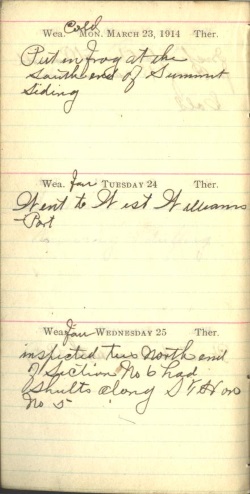 Wea. Cold Mon. March 23, 1914 Ther.
Put in frog at the
South end of Summit
Siding
Wea. Fair Tuesday 24 Ther.
Went to West Williams
-Port
Wea. Fair Wednesday 25 Ther.
inspected ties North end
of Section No 6 had
Shults along
No 5